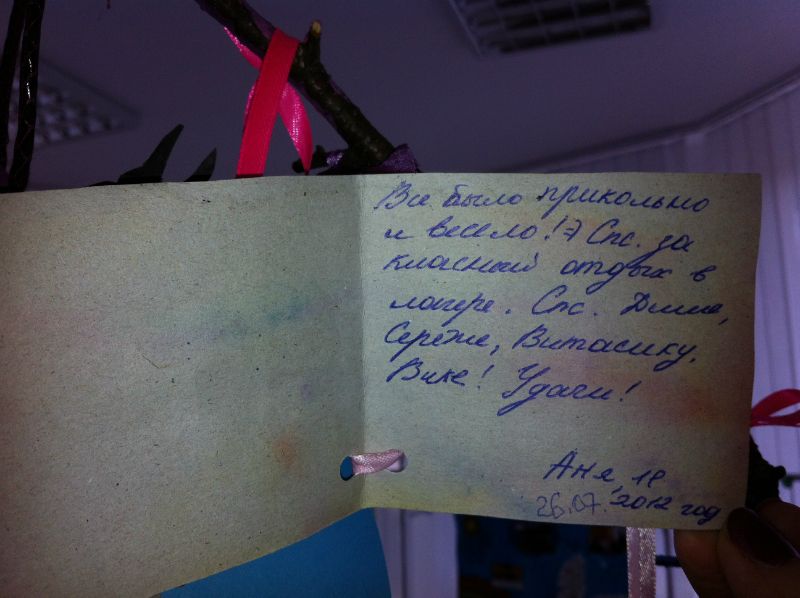 Все было прикольно
и весело!) Спс. за
класный отдых в
лагере. Спс. Диме,
Сереже, Витасику,
Вике! Удачи!
Аня, 18
26.07.2012 год